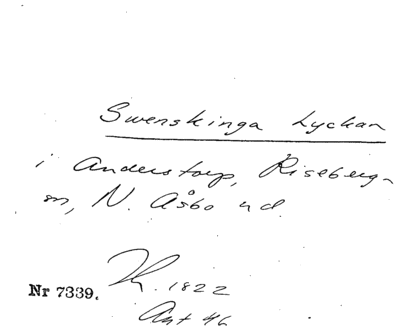 Swenskinga Lyckan
i Anderstorp, Riseberga
sn, N. Åsbo hd.
Nr 7339.
1822
Akt 46